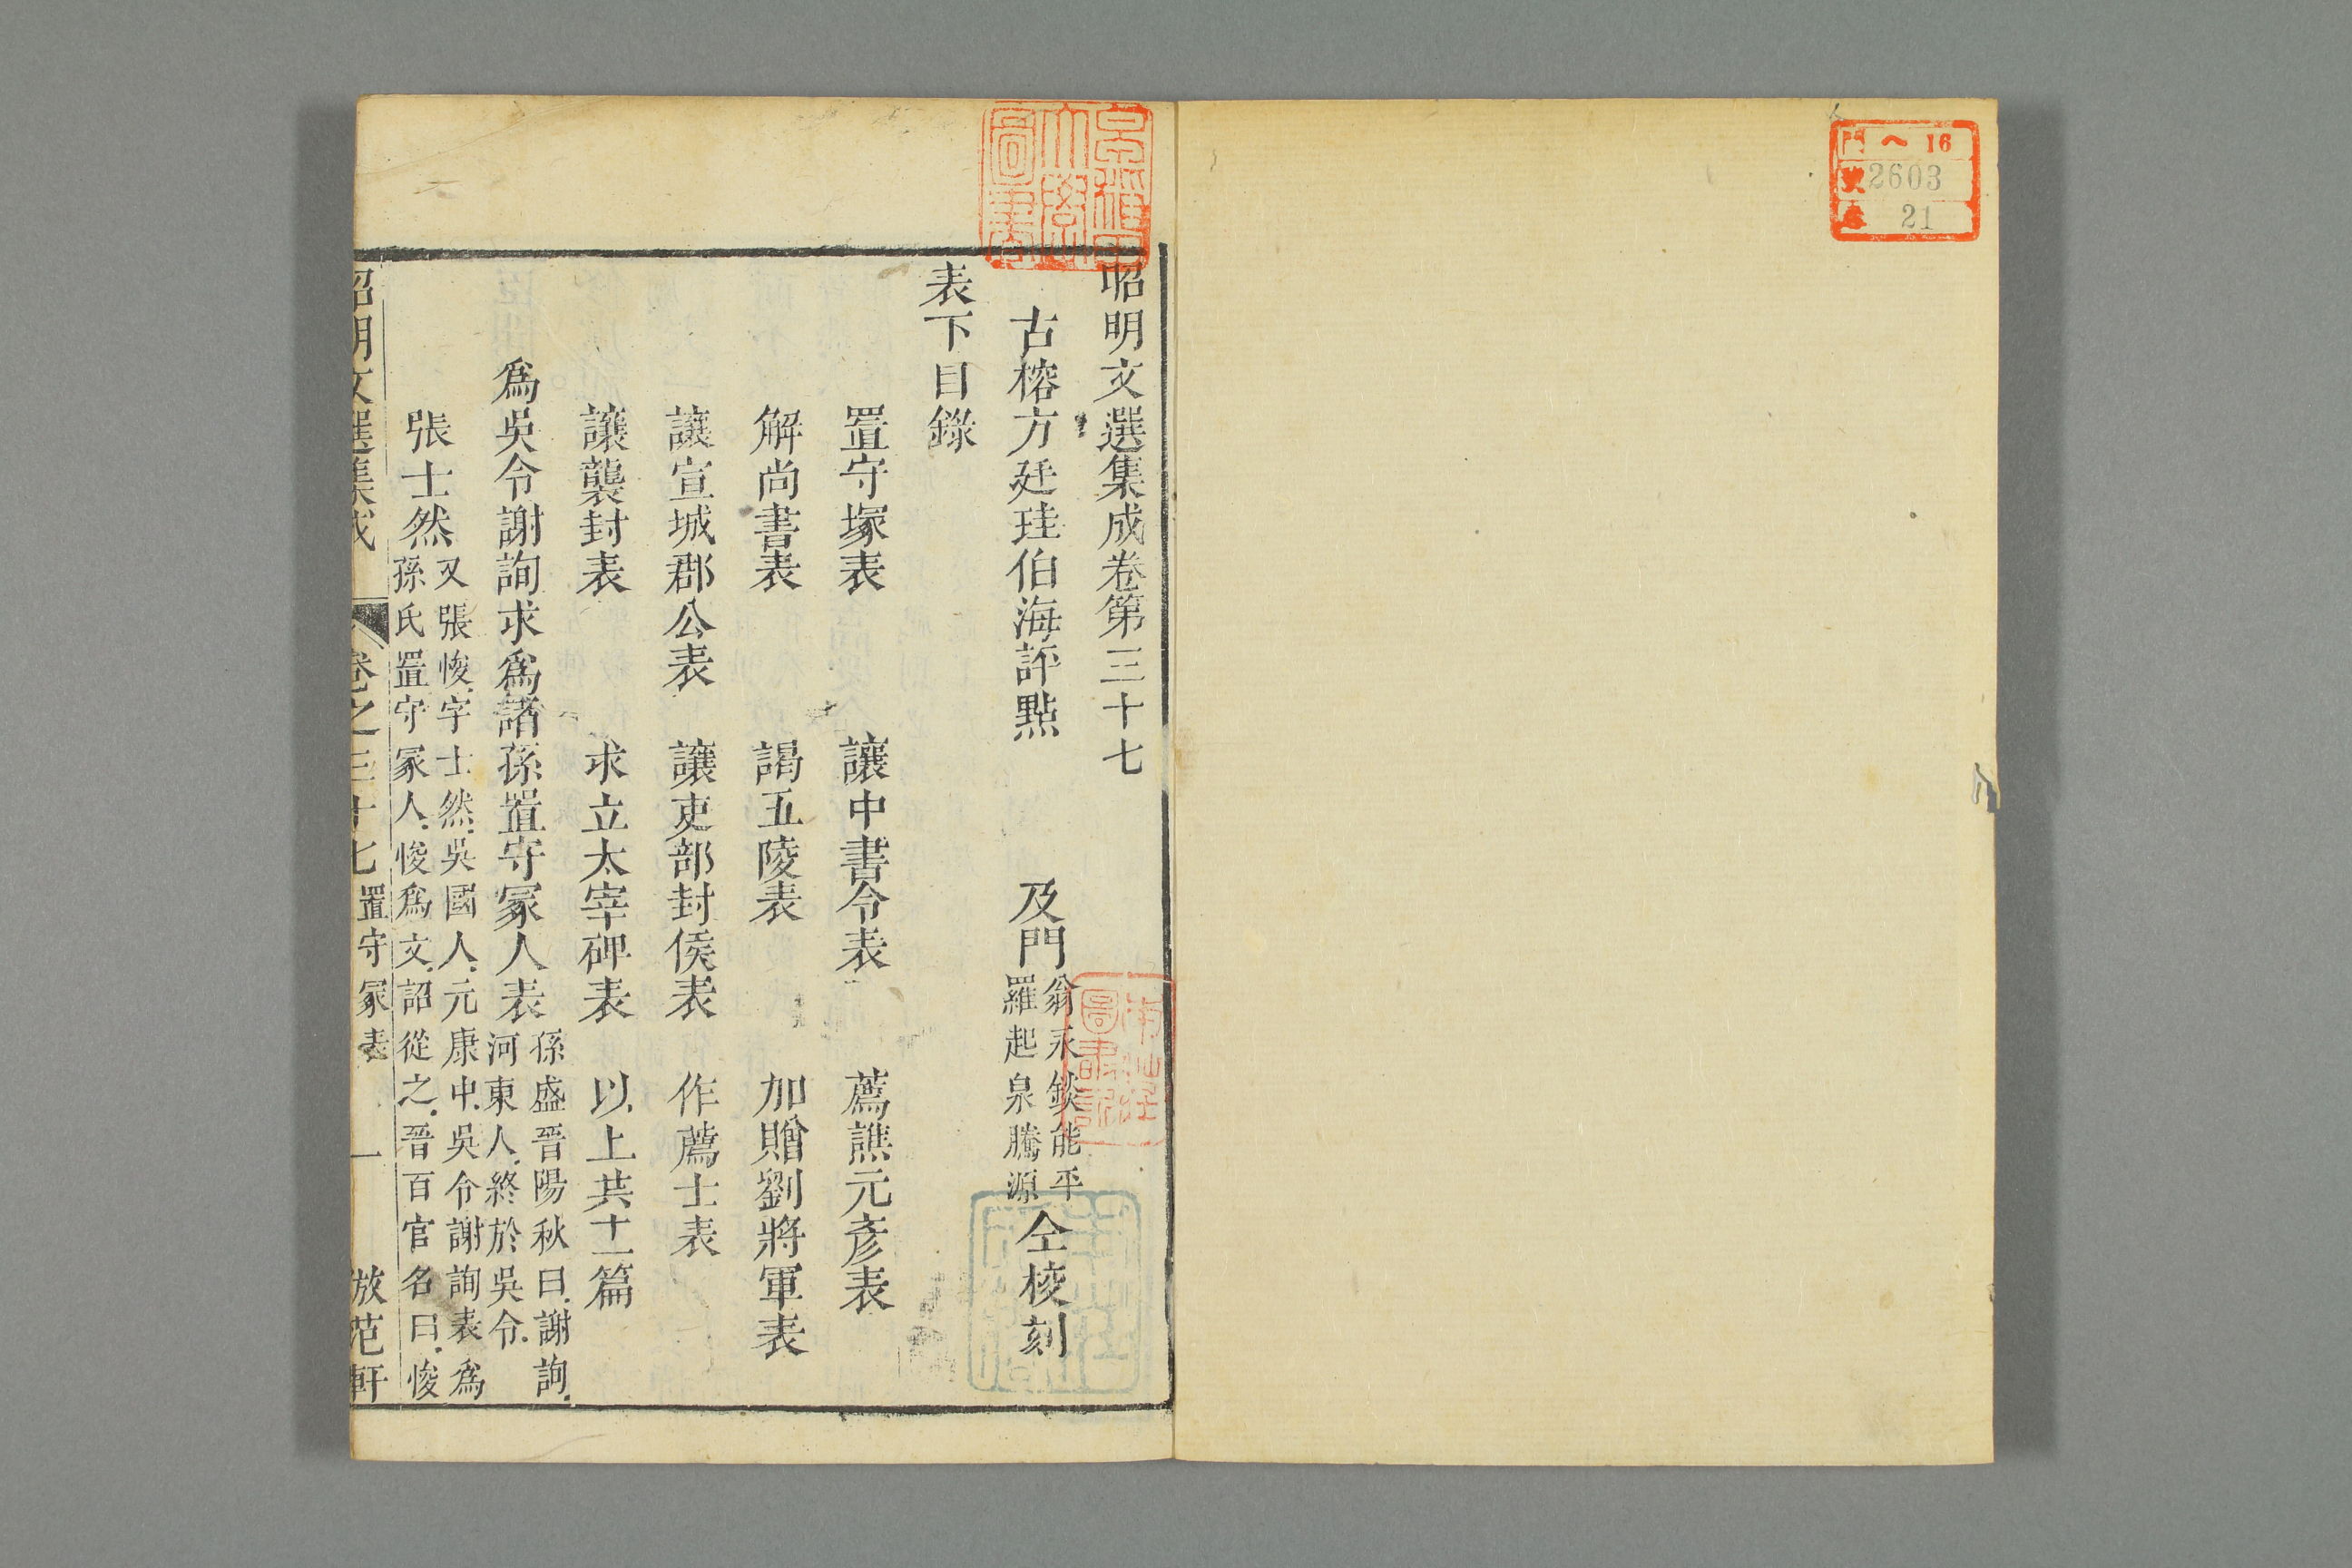 門 ヘ 16
號 2603
卷 21
昭明文選集成卷第三十七
古榕方廷珪伯海評點 及門
翁汞錟能平
羅起泉騰源
仝梭刻
表下目錄
置守塚表 讓中書令表 薦譙元彥表
解尚書表 謁五陵表 加贈劉將軍表
讓宣城郡公表 讓吏部封侯表 作薦士表
讓襲封表 求立太宰碑表 以上共十一篇
為吳令謝詢求為諸孫置守冢人表
孫盛晉陽秋曰謝詢
河東人終於吳令
張士然
又張悛字士然吳國人元康中吳令謝詢表為
孫氏置守冢人悛為文詔從之晉百官名曰悛
昭明文選集成 卷之三十七 置守冢表 一 放范軒